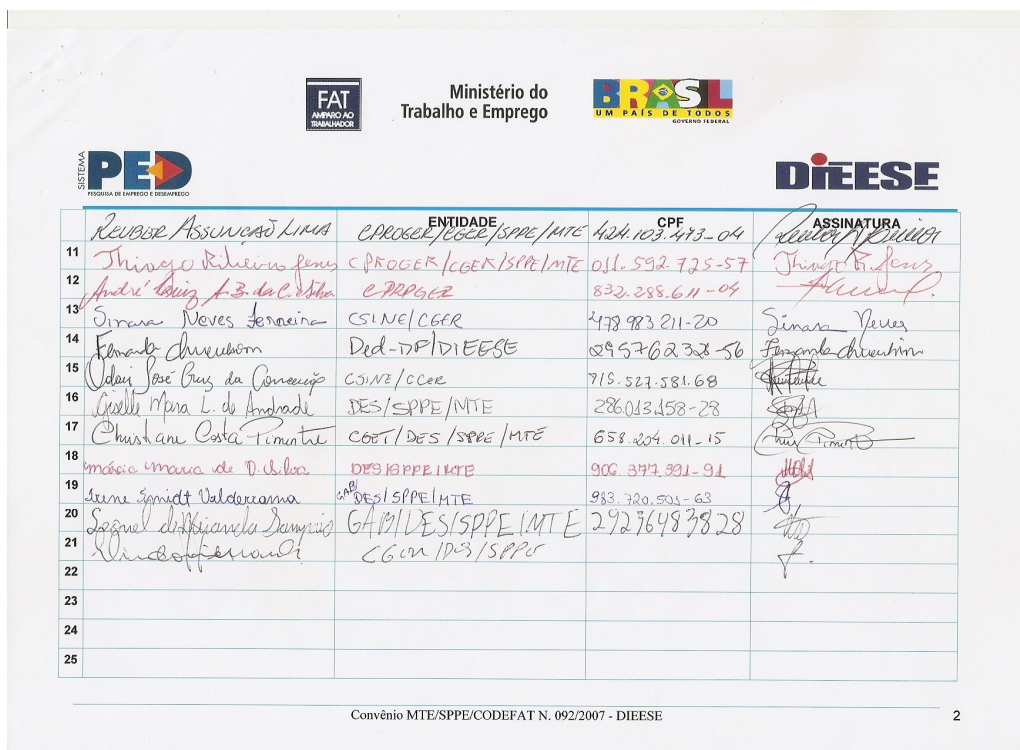 FAT
AMPARO AO
TRABALHADOR
Ministério do
Trabalho e Emprego
BRASIL
UM PAÍS DE TODOS
GOVERNO FEDERAL
SISTEMA
PED
PESQUISA DE EMPREGO E DESEMPREGO
DIEESE
ENTIDADE CPF ASSINATURA
REUBER ASSUNÇÃO LIMA CPROGER/CGER/SPPE/MTE 424.103.473-04
11 Thiago Ribeiro Jesus CPROGER/CGER/SPPE/MTE 011.592.725-57 Thiago R. Jesus
12 André Luiz A.B. da C. e Silva CPROGER 832.288.611-04
13 Sinara Neves Ferreira CSINE/CGER 478 983 211-20 Sinara Neves
14 Fernanda Ded-DF/DIEESE 295762328-56 Fernanda
15 Odair José Cruz da Conceição CSINE/CGER 715.527.581.68
16 Giselle Mara L. de Andrade DES/SPPE/MTE 286.013.158-28
17 Christiane Costa Pimentel CGET/DES/SPPE/MTE 658.204.011-15
18 Márcia Maria de D. Silva DES/SPPE/MTE 906.377.391-91
19 Irene Valderrama GAB/DES/SPPE/MTE 983.720.501-63
20 Leonel de Miranda Sampaio GAB/DES/SPPE/MTE 29236483828
21
22
23
24
25
Convênio MTE/SPPE/CODEFAT N. 092/2007 - DIEESE 2